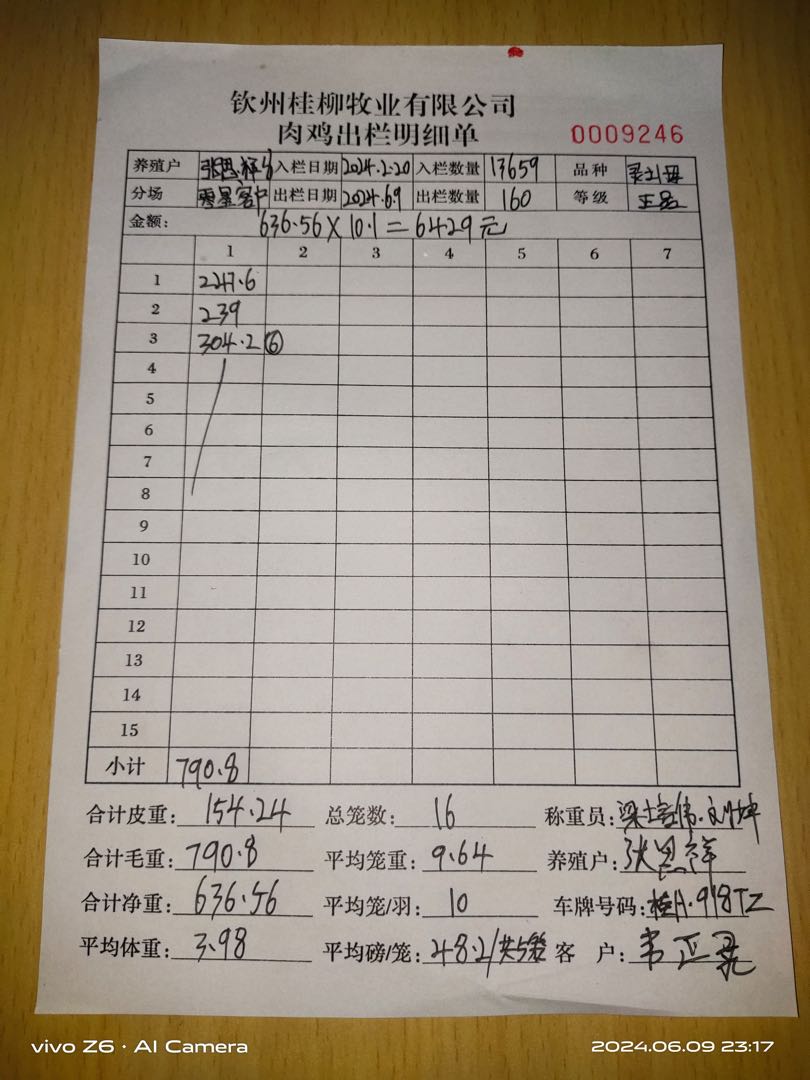 钦州桂柳牧业有限公司
肉鸡出栏明细单
0009246
养殖户 入栏日期 2024.2.20 入栏数量 13659 品种
分场 零星客户 出栏日期 2024.6.9 出栏数量 160 等级
金额: 636.56×10.1=6429元
1 2 3 4 5 6 7
1 247.6
2 239
3 304.2 ⑥
4
5
6
7
8
9
10
11
12
13
14
15
小计 790.8
合计皮重: 154.24 总笼数: 16 称重员:
合计毛重: 790.8 平均笼重: 9.64 养殖户: 张恩祥
合计净重: 636.56 平均笼/羽: 10 车牌号码: 桂A·918TZ
平均体重: 3.98 平均磅/笼: 48.2/ 客 户:
vivo Z6 · AI Camera
2024.06.09 23:17